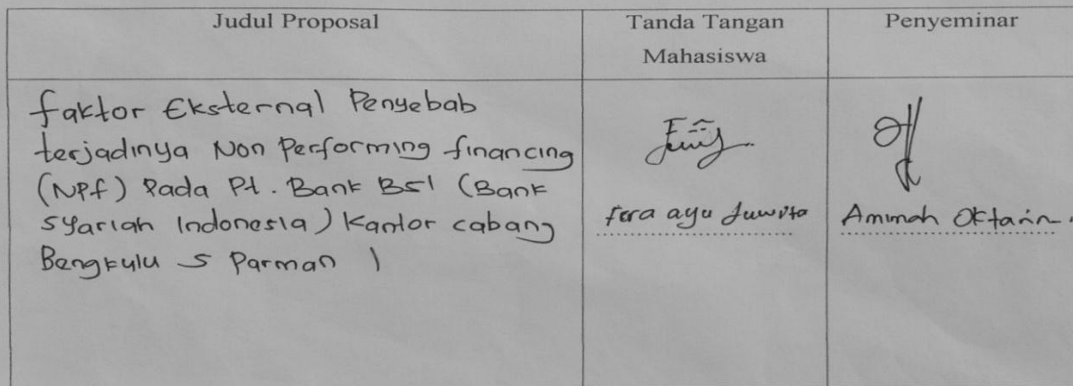 Judul Proposal
Tanda Tangan
Mahasiswa
Penyeminar
faktor Eksternal Penyebab
terjadinya Non Performing financing
(NPf) Pada Pt. Bank BSI (Bank
Syariah Indonesia) Kantor cabang
Bengkulu S Parman 1
fera ayu Juwita
Oktarin